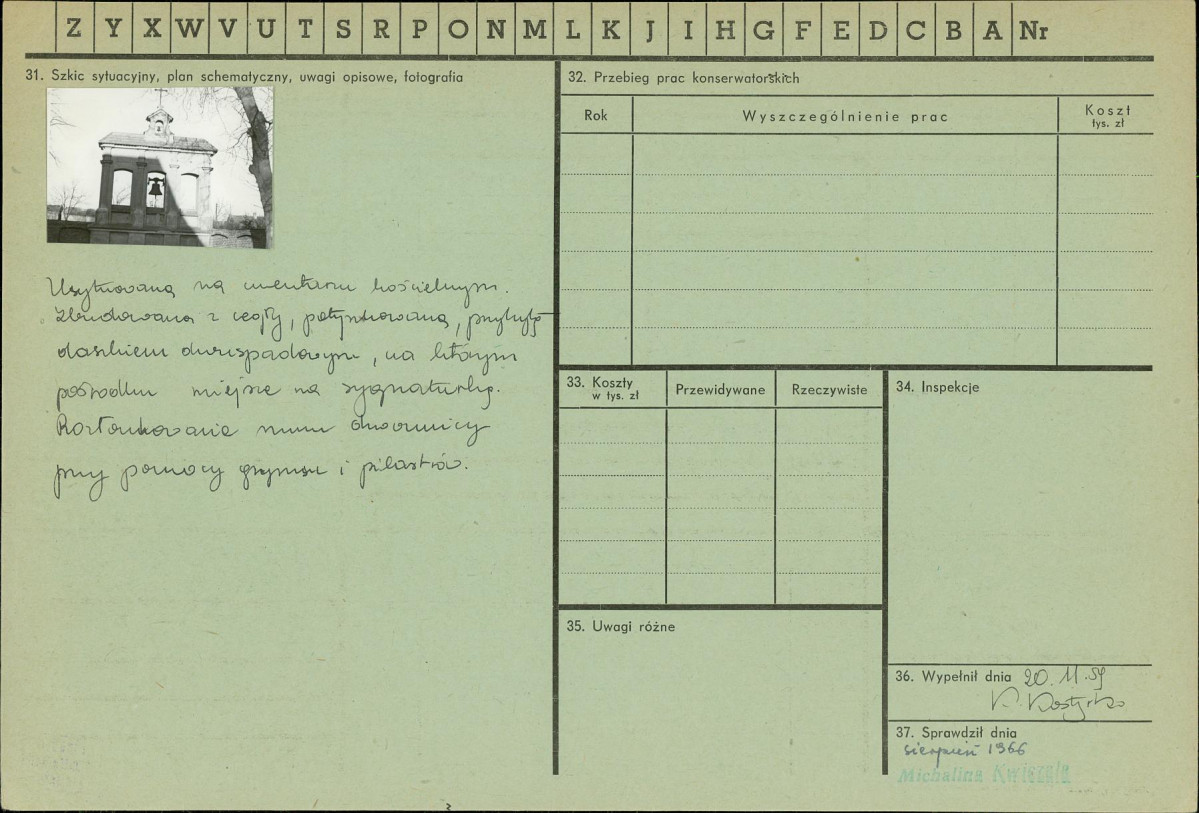 Z Y X W V U T S R P O N M L K J I H G F E D C B A Nr
31. Szkic sytuacyjny, plan schematyczny, uwagi opisowe, fotografia
Usytuowana na cmentarzu kościelnym.
Zbudowana z cegły, potynkowana, przykryta
daszkiem dwuspadowym, na którym
pośrodku miejsce na sygnaturkę.
Rozczłonkowanie muru dzwonnicy
przy pomocy gzymsu i pilastrów.
32. Przebieg prac konserwatorskich
Rok
Wyszczególnienie prac
Koszt
tys. zł
33. Koszty
w tys. zł
Przewidywane
Rzeczywiste
34. Inspekcje
35. Uwagi różne
36. Wypełnił dnia 20.11.59
37. Sprawdził dnia
sierpień 1966
Michalina Kwiczala